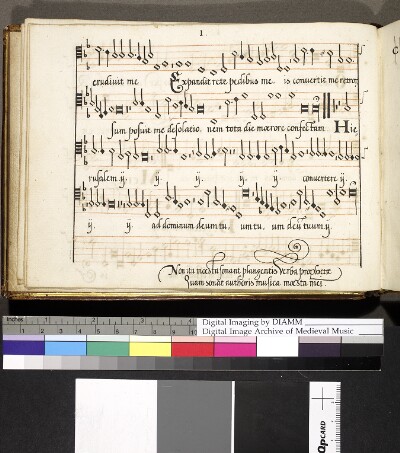 1.
erudiuit me Expandit rete pedibus me is conuertit me retror
sum posuit me desolatio nem tota die moerore confectam Hie
rusalem ij. ij. ij. ij. ij. conuertere ij.
ij. ij. ad dominum deum tu um tu um deum tuum ij.
Non ita moesta sonant plangentis verba prophetae
Quam sonat authoris musica moesta mei
inches 1 2 3 4 5 6 7
Digital Imaging by DIAMM
Digital Image Archive of Medieval Music
QPCARD